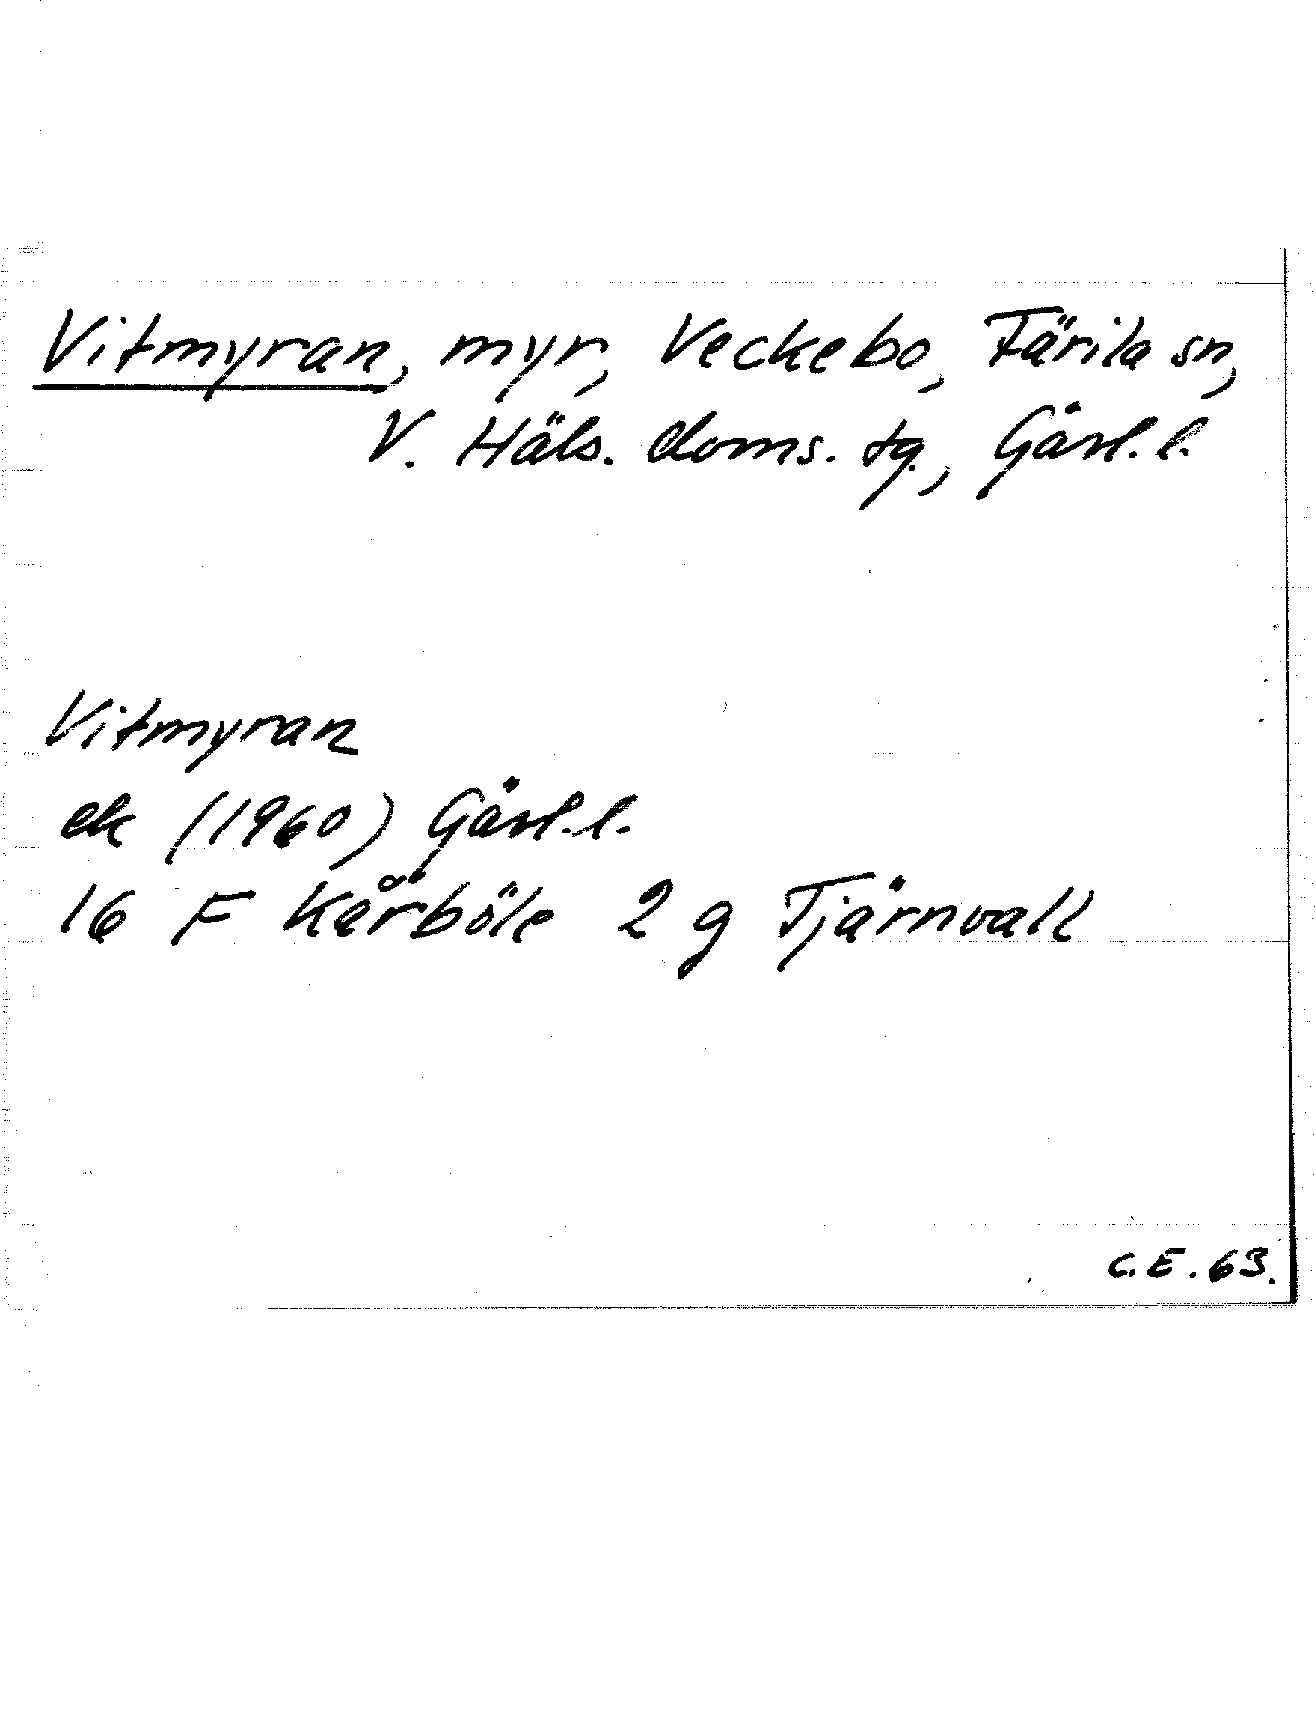 Vitmyran, myr, Veckebo, Färila sn,
V. Häls. doms. tg., Gävl. l.
Vitmyran
ek (1960) Gävl. l.
16 F Kårböle 2 g Tjärnvall
C. E. 63.